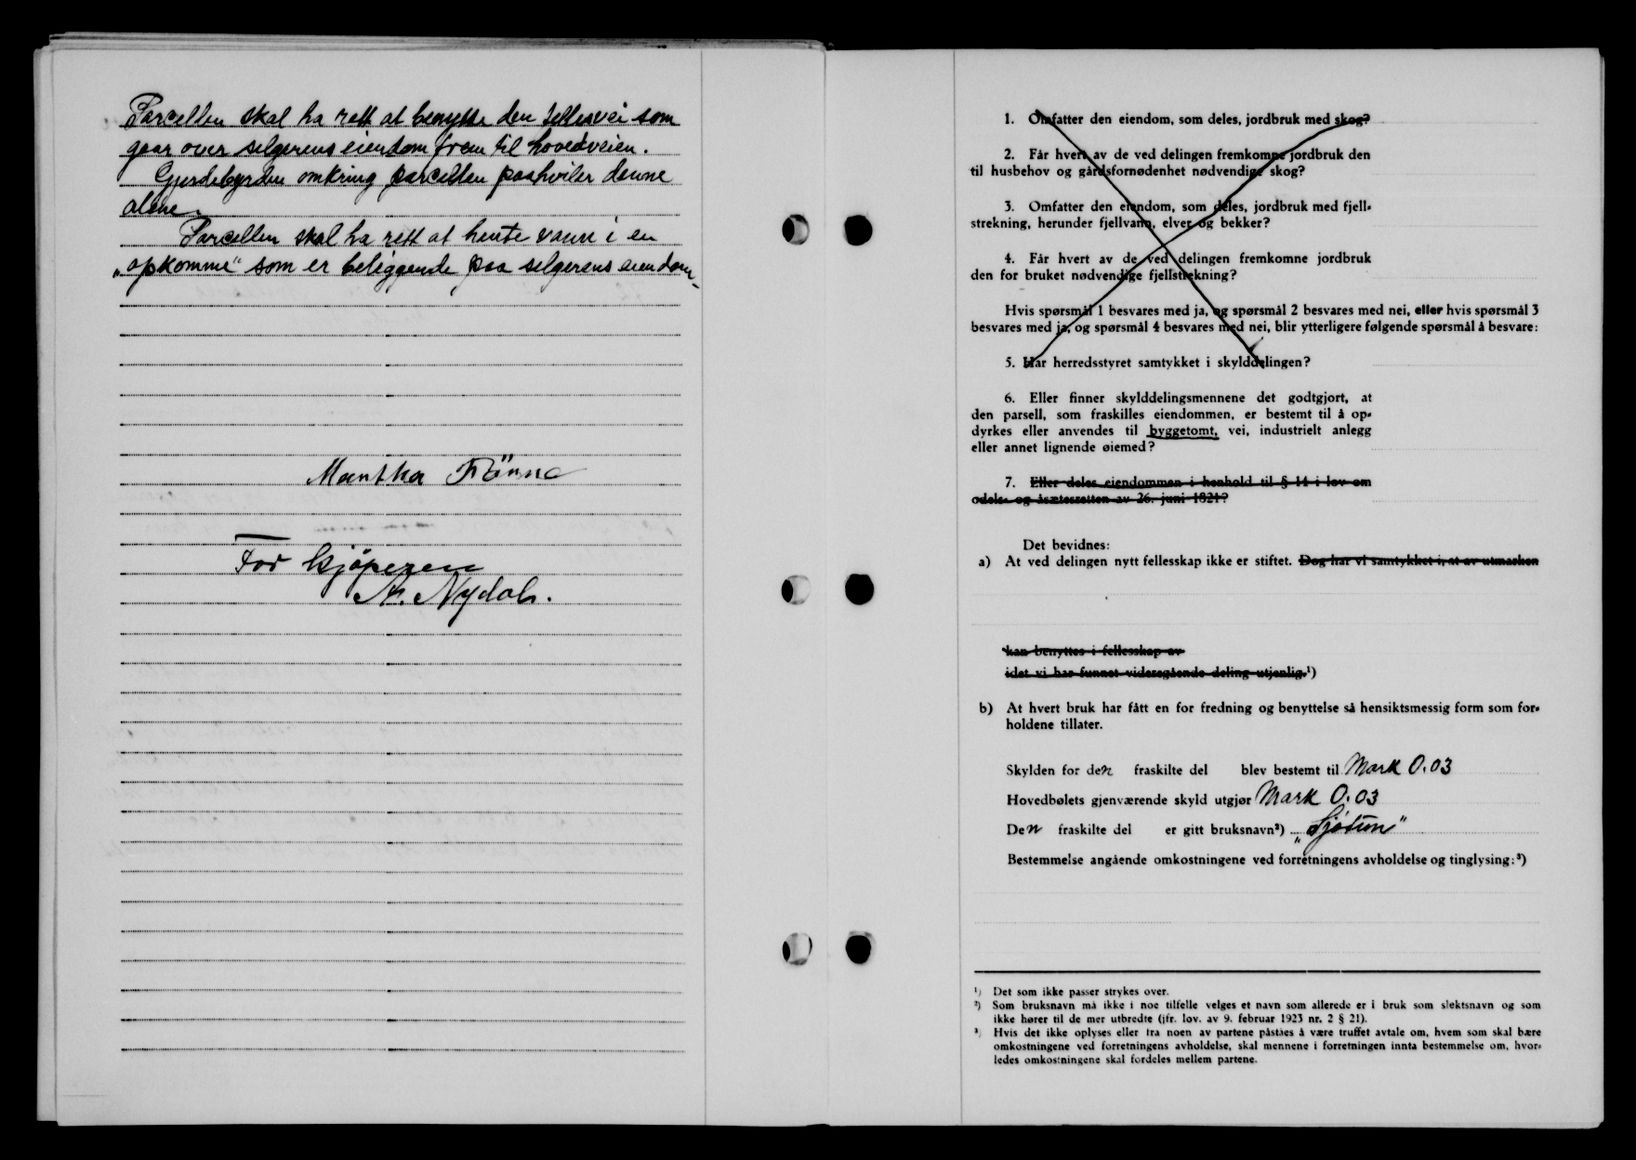 Parcellen skal ha rett at benytte den fellesvei som
gaar over selgerens eiendom frem til hovedveien.
Gjerdebyrden omkring parcellen paahviler denne
alene.
Parcellen skal ha rett at hente vann i en
"opkomme" som er beliggende paa selgerens eiendom.
Martha Rönne
For Kjøperen
N. Nydal.
1. Omfatter den eiendom, som deles, jordbruk med skog?
2. Får hvert av de ved delingen fremkomne jordbruk den
til husbehov og gårdsfornødenhet nødvendige skog?
3. Omfatter den eiendom, som deles, jordbruk med fjell-
strekning, herunder fjellvann, elver og bekker?
4. Får hvert av de ved delingen fremkomne jordbruk
den for bruket nødvendige fjellstrekning?
Hvis spørsmål 1 besvares med ja, og spørsmål 2 besvares med nei, eller hvis spørsmål 3
besvares med ja, og spørsmål 4 besvares med nei, blir ytterligere følgende spørsmål å besvare:
5. Har herredsstyret samtykket i skylddelingen?
6. Eller finner skylddelingsmennene det godtgjort, at
den parsell, som fraskilles eiendommen, er bestemt til å op-
dyrkes eller anvendes til byggetomt, vei, industrielt anlegg
eller annet lignende øiemed?
7. Eller deles eiendommen i henhold til § 14 i lov om
odels- og åsætesretten av 26. juni 1821?
Det bevidnes:
a) At ved delingen nytt fellesskap ikke er stiftet. Dog har vi samtykket i, at av utmarken
kan benyttes i fellesskap av
idet vi har funnet videregående deling utjenlig.¹)
b) At hvert bruk har fått en for fredning og benyttelse så hensiktsmessig form som for-
holdene tillater.
Skylden for den fraskilte del blev bestemt til Mark 0.03
Hovedbølets gjenværende skyld utgjør Mark 0.03
Den fraskilte del er gitt bruksnavn²) "Sjøtun"
Bestemmelse angående omkostningene ved forretningens avholdelse og tinglysing:³)
¹) Det som ikke passer strykes over.
²) Som bruksnavn må ikke i noe tilfelle velges et navn som allerede er i bruk som slektsnavn og som
ikke hører til de mer utbredte (jfr. lov. av 9. februar 1923 nr. 2 § 21).
³) Hvis det ikke oplyses eller fra noen av partene påståes å være truffet avtale om, hvem som skal bære
omkostningene ved forretningens avholdelse, skal mennene i forretningen innta bestemmelse om, hvor-
ledes omkostningene skal fordeles mellem partene.